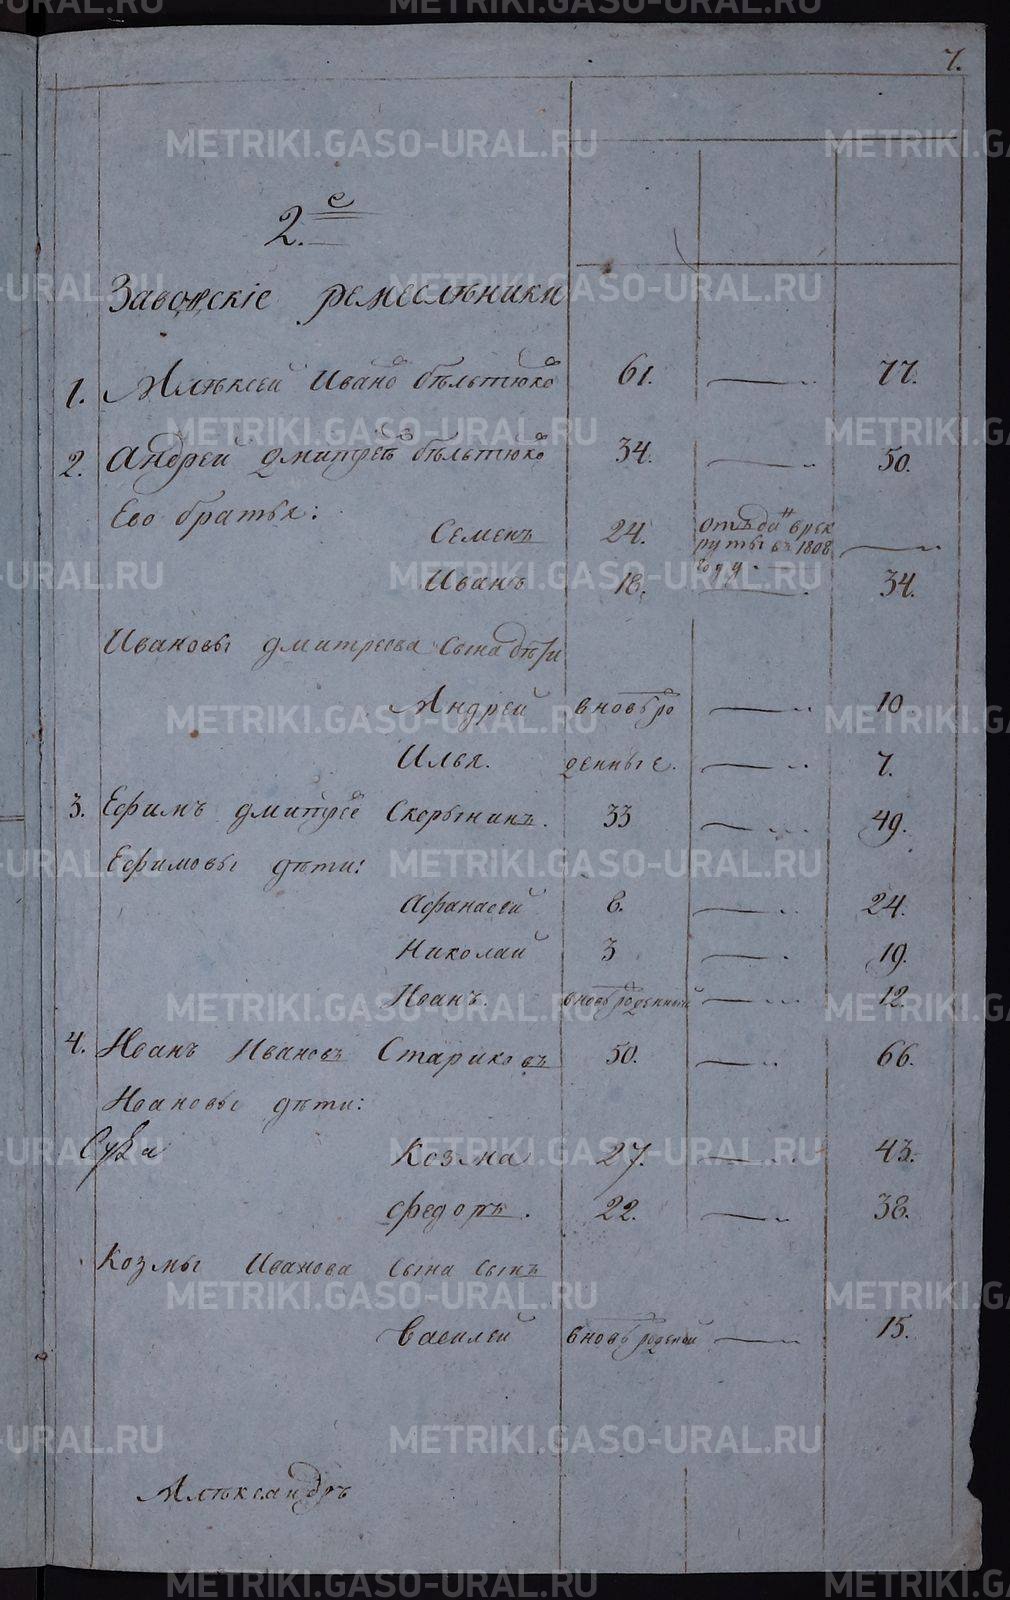 7.
2.е
Заводскіе ремеслѣники
1. Алѣксей Ивано в бѣлтюко в 61. 77.
2. Андрей дмитреѣв бѣлтюко в 34. 50.
Его братья:
Семенъ 24. отъдан в рек
руты въ 1808
году
Иванъ 18. 34.
Ивановы дмитреева сына дѣти
Андрей вновь ро 10
Илья. денные. 7.
3. Ефимъ дмитрее в Скорынинъ. 33 49.
Ефимовы дѣти:
Афанасей 6. 24.
Николай 3 19.
Иоанъ. вновь роденный 12.
4. Иоанъ Ивановъ Стариковъ 50. 66.
Иоановы дѣти:
Козма 27. 43.
федоръ. 22. 38.
Козмы Иванова сына сынъ
Василей вновь роденой 15.
Алѣксандръ
METRIKI.GASO-URAL.RU